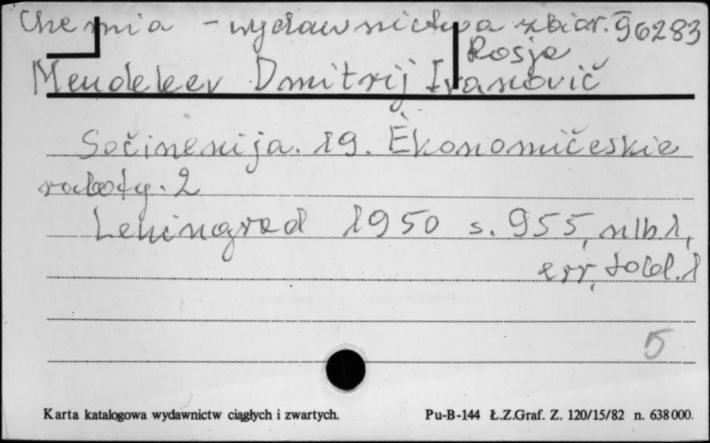 Chemia - wydawnictwa zbior. 96283
Rosja
Mendeleev Dmitrij Ivanovič
Sočinenija. 19. Èkonomičeskie
raboty. 2
Leningrad 1950 s. 955, nlb. 1,
err, tabl. 1
5
Karta katalogowa wydawnictw ciągłych i zwartych. Pu-B-144 Ł.Z.Graf. Z. 120/15/82 n. 638000.